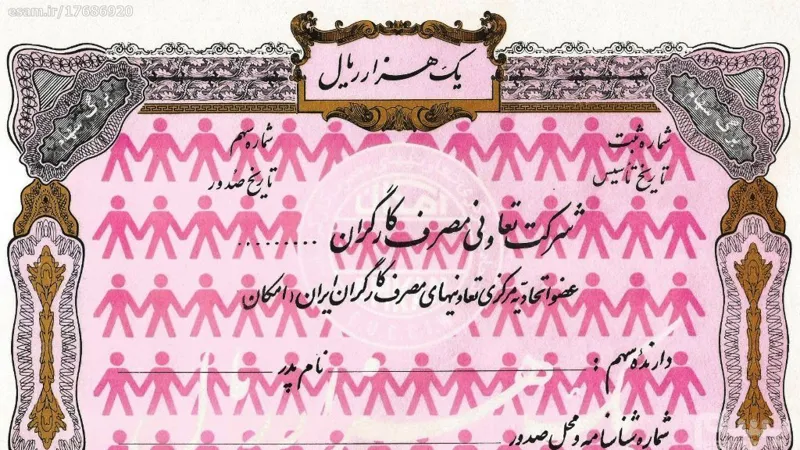 esam.ir/17686920
یک هزار ریال
برگ سهام
برگ سهام
شماره ثبت
شماره سهم
تاریخ تأسیس
تاریخ صدور
شرکت تعاونی مصرف کارگران ..........
عضو اتحادیه مرکزی تعاونیهای مصرف کارگران ایران (امکان
دارنده سهم :
نام پدر
شماره شناسنامه و محل صدور